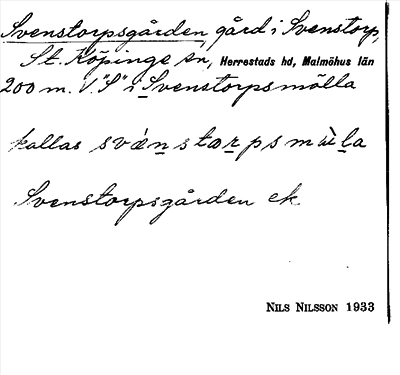 Svenstorpsgården, gård i Svenstorp,
St. Köpinge sn, Herrestads hd, Malmöhus län
200 m. V. "S" i Svenstorpsmölla
kallas
Svenstorpsgården ek.
NILS NILSSON 1933